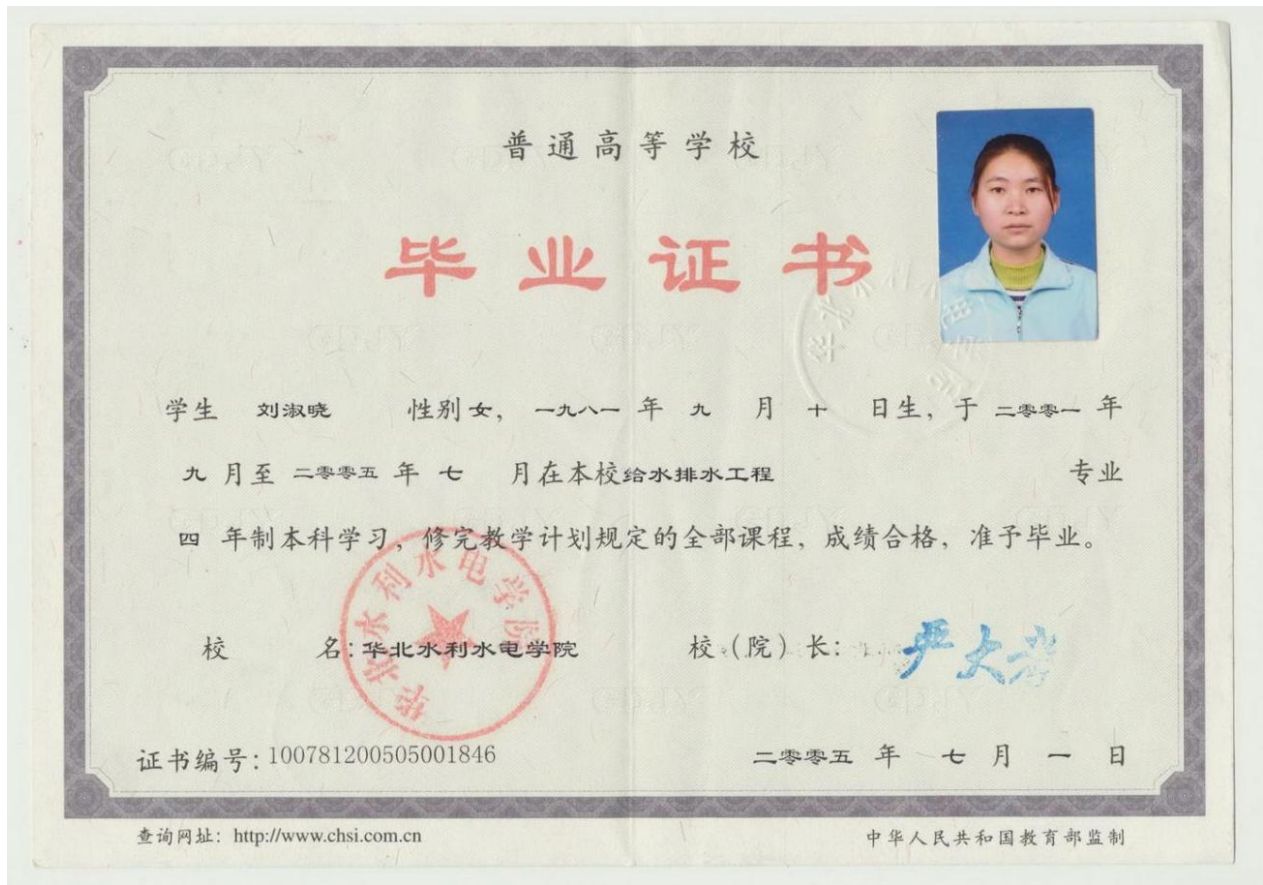 普通高等学校
毕业证书
学生 刘淑晓 性别 女, 一九八一 年 九 月 十 日生, 于 二零零一 年
九 月至 二零零五 年 七 月在本校 给水排水工程 专业
四 年制本科学习, 修完教学计划规定的全部课程, 成绩合格, 准予毕业。
校 名: 华北水利水电学院 校(院)长: 严大考
华北水利水电学院
证书编号: 100781200505001846 二零零五 年 七 月 一 日
查询网址: http://www.chsi.com.cn 中华人民共和国教育部监制